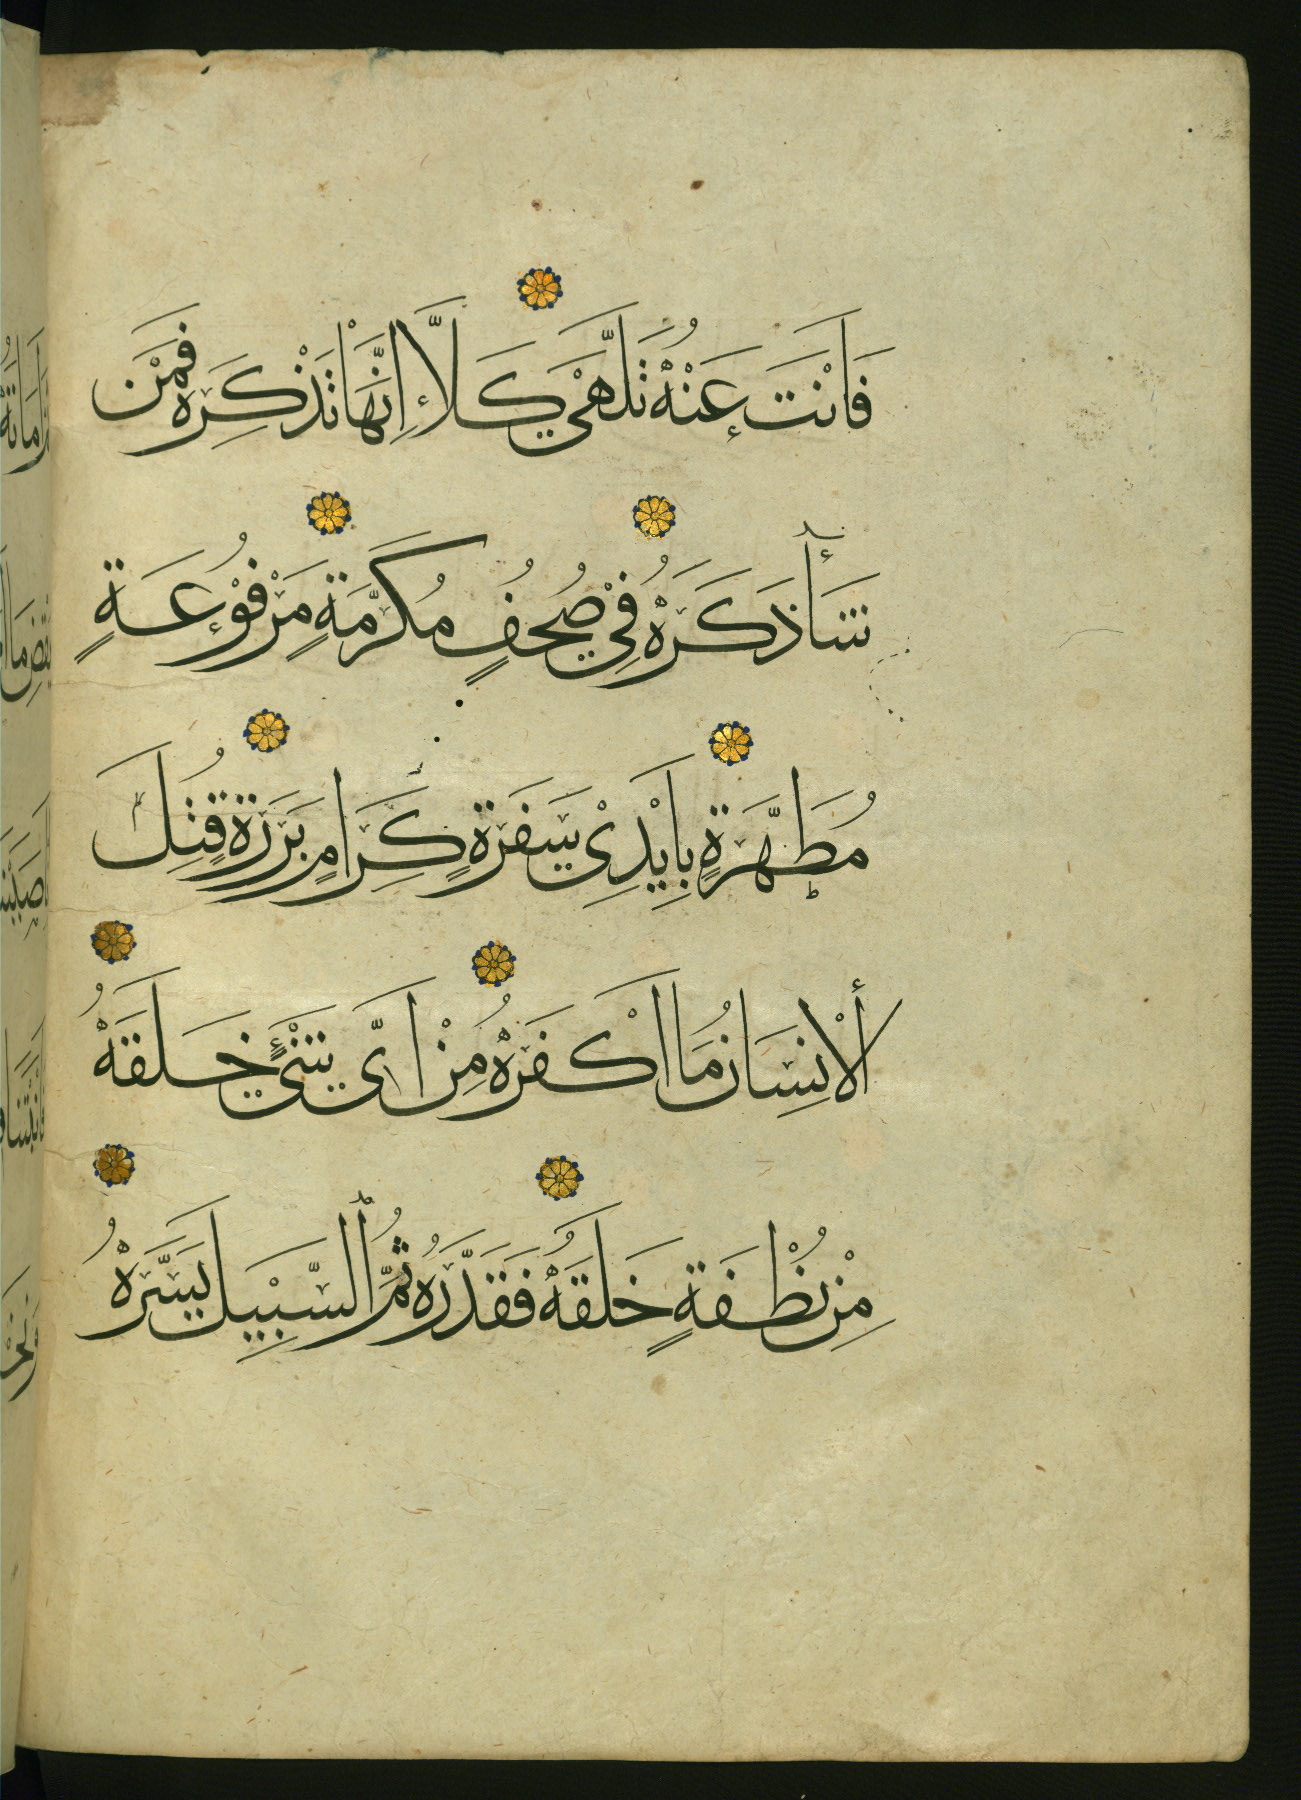 فَاَنْتَ عَنْهُ تَلَهّٰى كَلَّا اِنَّهَا تَذْكِرَةٌ فَمَنْ
شَآءَ ذَكَرَهُ فِيْ صُحُفٍ مُكَرَّمَةٍ مَرْفُوْعَةٍ
مُطَهَّرَةٍ بِاَيْدِيْ سَفَرَةٍ كِرَامٍ بَرَرَةٍ قُتِلَ
الْاِنْسَانُ مَا اَكْفَرَهُ مِنْ اَيِّ شَيْءٍ خَلَقَهُ
مِنْ نُطْفَةٍ خَلَقَهُ فَقَدَّرَهُ ثُمَّ السَّبِيْلَ يَسَّرَهُ